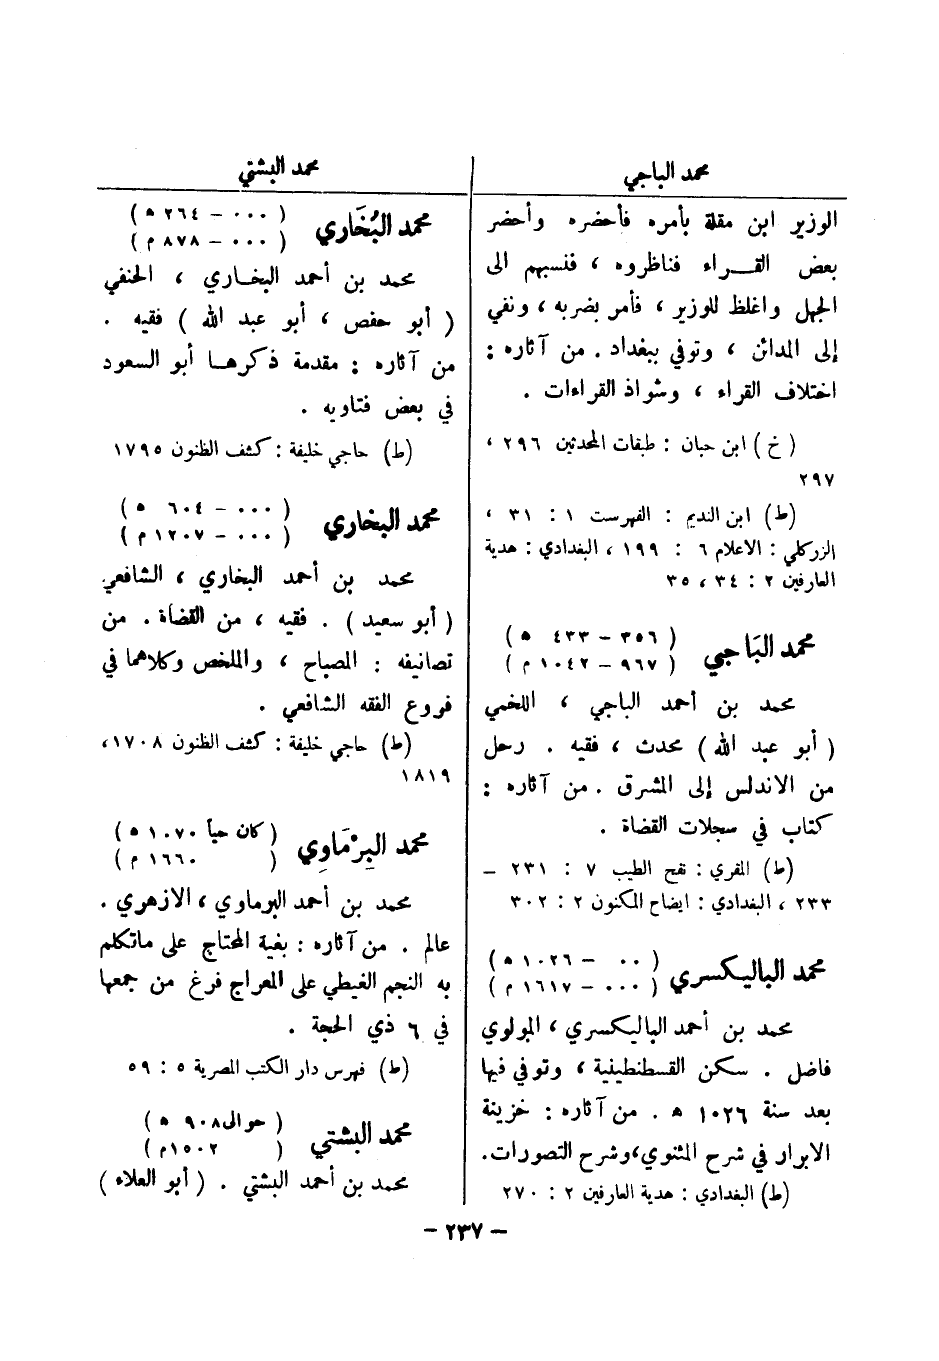 محمد الباجي
الوزير ابن مقلة بأمره فأحضره وأحضر
بعض القراء فناظروه ، فنسبهم الى
الجهل واغلظ للوزير ، فأمر بضربه ، ونفي
إلى المدائن ، وتوفي ببغداد . من آثاره :
اختلاف القراء ، وشواذ القراءات .
( خ ) ابن حبان : طبقات المحدثين ٢٩٦ ،
٢٩٧
(ط) ابن النديم : الفهرست ١ : ٣١ ،
الزركلي : الاعلام ٦ : ١٩٩ ، البغدادي : هدية
العارفين ٢ : ٣٤ ، ٣٥
محمد البَاجي ( ٣٥٦ – ٤٣٣ ه )
( ٩٦٧ – ١٠٤٢ م )
محمد بن أحمد الباجي ، اللخمي
( أبو عبد الله ) محدث ، فقيه . رحل
من الاندلس إلى المشرق . من آثاره :
كتاب في سجلات القضاة .
(ط) المقري : نفح الطيب ٧ : ٢٣١ –
٢٣٣ ، البغدادي : ايضاح المكنون ٢ : ٣٠٢
محمد الباليكسري ( ٠٠ – ١٠٢٦ ه )
( ٠٠٠ – ١٦١٧ م )
محمد بن أحمد الباليكسري ، المولوي
فاضل . سكن القسطنطينية ، وتوفي فيها
بعد سنة ١٠٢٦ ه . من آثاره : خزينة
الابرار في شرح المثنوي، وشرح التصورات.
(ط) البغدادي : هدية العارفين ٢ : ٢٧٠
محمد البشتي
محمد البُخَاري ( ٠٠٠ – ٢٦٤ ه )
( ٠٠٠ – ٨٧٨ م )
محمد بن أحمد البخاري ، الحنفي
( أبو حفص ، أبو عبد الله ) فقيه .
من آثاره : مقدمة ذكرها أبو السعود
في بعض فتاويه .
(ط) حاجي خليفة : كشف الظنون ١٧٩٥
محمد البخاري ( ٠٠٠ – ٦٠٤ ه )
( ٠٠٠ – ١٢٠٧ م )
محمد بن أحمد البخاري ، الشافعي
( أبو سعيد ) . فقيه ، من القضاة . من
تصانيفه : المصباح ، والملخص وكلاهما في
فروع الفقه الشافعي .
(ط) حاجي خليفة : كشف الظنون ١٧٠٨،
١٨١٩
محمد البِرْمَاوِي ( كان حياً ١٠٧٠ ه )
( ١٦٦٠ م )
محمد بن أحمد البرماوي ، الازهري .
عالم . من آثاره : بغية المحتاج على ماتكلم
به النجم الغيطي على المعراج فرغ من جمعها
في ٦ ذي الحجة .
(ط) فهرس دار الكتب المصرية ٥ : ٥٩
محمد البشتي ( حوالى ٩٠٨ ه )
( ١٥٠٢ م )
محمد بن أحمد البشتي . ( أبو العلاء )
– ٢٣٧ –